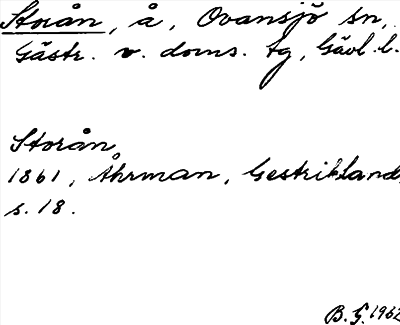 Storån, å, Ovansjö sn,
Gästr. v. doms. tg, Gävl. l.
Storån,
1861, Åhrman, Gestrikland,
s. 18.
B. G. 1962